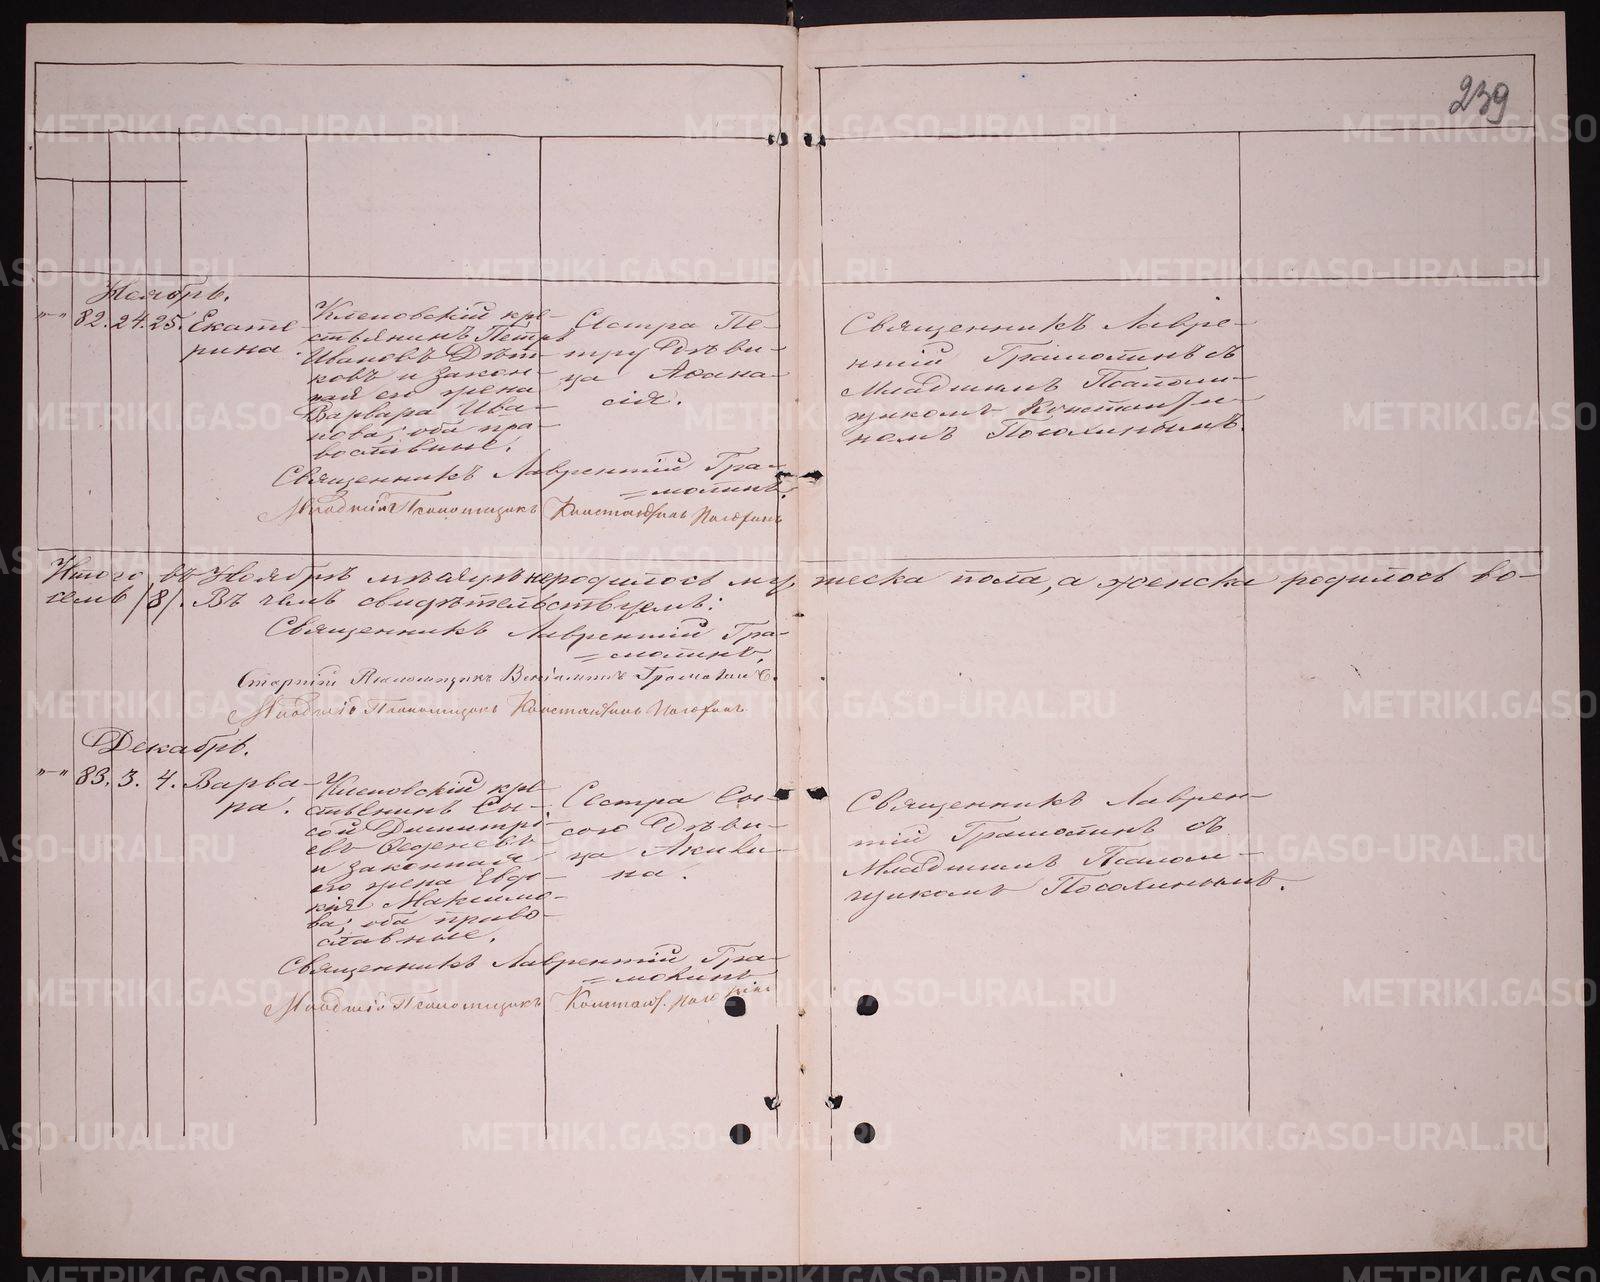 239
Ноябрь.
"–" 82. 24. 25. Екате-
рина.
Кленовскій кре-
стьянинъ Петръ
Ивановъ Дѣт-
ковъ и закон-
ная его жена
Варвара Ива-
нова; оба пра-
вославные.
Сестра Пе-
тру дѣви-
ца Аѳана-
сія.
Священникъ Лавре-
нтій Грамотинъ съ
Младшимъ Псалом-
щикомъ Константи-
номъ Посохинымъ.
Священникъ Лаврентій Гра-
=мотинъ.
Младшій Псаломщикъ Константинъ Посохинъ
Итого въ Ноябрѣ мѣсяцѣ неродилось му- жеска пола, а женска родилось во-
семь /8/. Въ чемъ свидѣтельствуемъ:
Священникъ Лаврентій Гра-
=мотинъ,
Старшій Псаломщикъ Веніаминъ Грамотинъ.
Младшій Псаломщикъ Константинъ Посохинъ
Декабрь.
"–" 83. 3. 4. Варва-
ра.
Кленовскій кре-
стьянинъ Сы-
сой Димитрі-
евъ Ѳеденевъ
и законная
его жена Евдо-
кія Максимо-
ва; оба право-
славные.
Сестра Сы-
сою дѣви-
ца Акили-
на.
Священникъ Лаврен-
тій Грамотинъ съ
Младшимъ Псалом-
щикомъ Посохинымъ.
Священникъ Лаврентій Гра-
=мотинъ
Младшій Псаломщикъ Констант. Посохинъ
METRIKI.GASO-URAL.RU